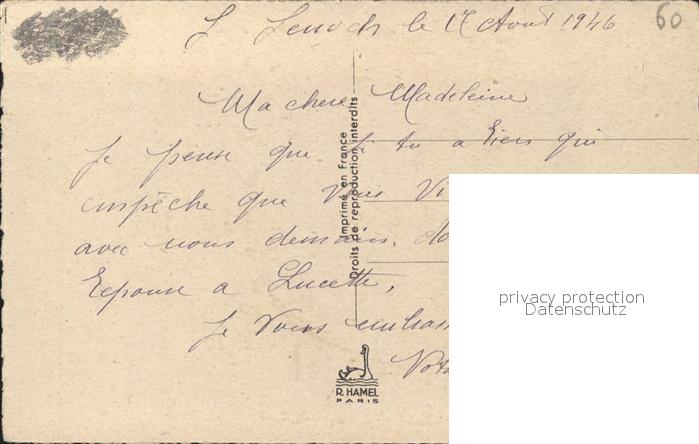 le 17 Août 1946
60
Ma chere Madeleine
Je pense que si tu a Riens qui
empèche que Vous Vi
avec nous demain.
Reponse a Lucette,
Je Vous embras
Vot
Imprimé en France
Droits de reproduction interdits
R. HAMEL
PARIS
privacy protection
Datenschutz